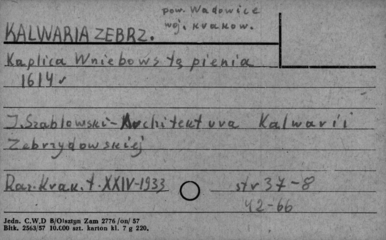 pow. Wadowice
woj. Kraków.
KALWARIA ZEBRZ.
Kaplica Wniebowstąpienia
1614 r
J. Szablowski - Architektura Kalwarii
Zebrzydowskiej
Rocz. Krak. t. XXIV-1933 str 37-8
42-66
Jedn. C.W.D B/Olsztyn Zam 2776 /on/ 57
Bltk. 2563/57 10.000 szt. karton kl. 7 g 220.